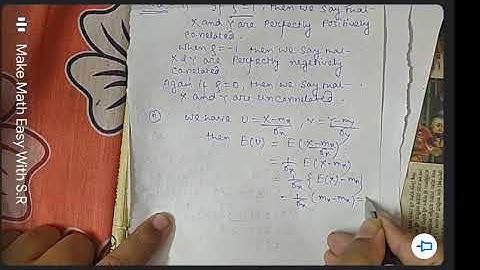 Make Math Easy With S.R
if ρ = 1, then we say that
X and Y are perfectly positively
correlated.
When ρ = -1 then we say that
X & Y are perfectly negetively
correlated.
Again if ρ = 0, then we say that
X and Y are uncorrelated.
(ii) We have U = X-mx/σx, V = Y-my/σy
then E(U) = E(X-mx/σx)
= 1/σx E(X-mx)
= 1/σx { E(X)-mx}
= 1/σx (mx-mx) =